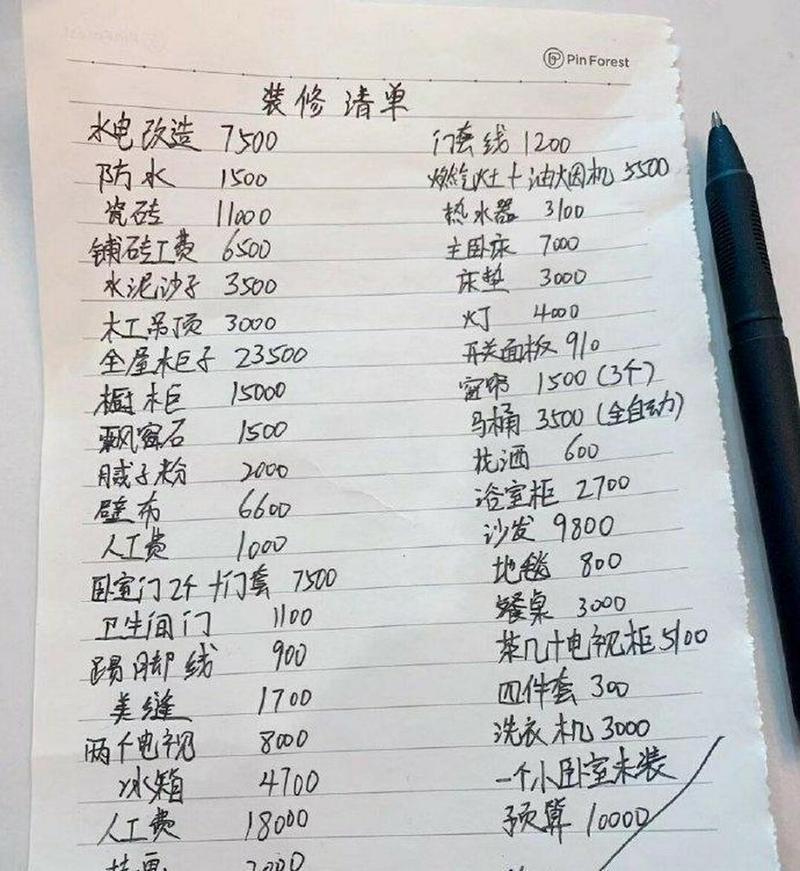 Pin Forest
装修清单
水电改造 7500
防水 1500
瓷砖 11000
铺砖工费 6500
水泥沙子 3500
木工吊顶 3000
全屋柜子 23500
橱柜 15000
飘窗石 1500
腻子粉 2000
壁布 6600
人工费 1000
卧室门2个+门套 7500
卫生间门 1100
踢脚线 900
美缝 1700
两个电视 8000
冰箱 4700
人工费 18000
门套线 1200
燃气灶+油烟机 5500
热水器 3100
主卧床 7000
床垫 3000
灯 4000
开关面板 910
窗帘 1500(3个)
马桶 3500(全自动)
花洒 600
浴室柜 2700
沙发 9800
地毯 800
餐桌 3000
茶几+电视柜 5100
四件套 300
洗衣机 3000
一个小卧室未装
预算 10000